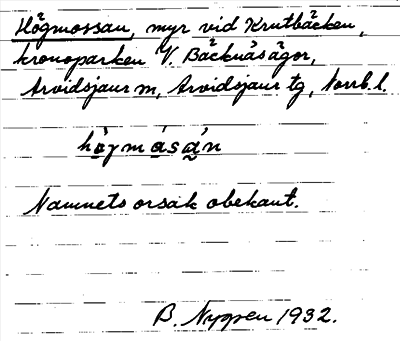 Högmossan, myr vid Krutbäcken,
kronoparken V. Bäcknäsågor,
Arvidsjaur m, Arvidsjaur tg, Norrb. l.
hògmásàn
Namnets orsak obekant.
B. Nyppen 1932.